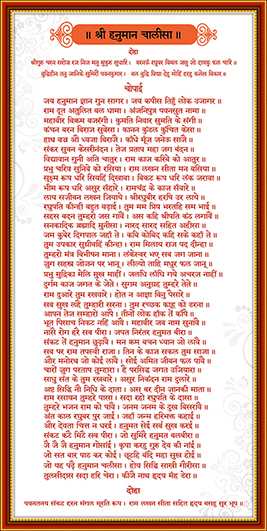 ॥ श्री हनुमान चालीसा ॥
दोहा
श्रीगुरु चरन सरोज रज निज मनु मुकुरु सुधारि । बरनऊँ रघुबर बिमल जसु जो दायकु फल चारि ॥
बुद्धिहीन तनु जानिके सुमिरौं पवनकुमार । बल बुद्धि विद्या देहु मोहिं हरहु कलेस बिकार ॥
चोपाई
जय हनुमान ज्ञान गुन सागर । जय कपीस तिहुँ लोक उजागर ॥
राम दूत अतुलित बल धामा । अंजनिपुत्र पवनसुत नामा ॥
महाबीर बिक्रम बजरंगी । कुमति निवार सुमति के संगी ॥
कंचन बरन बिराज सुबेसा । कानन कुंडल कुंचित केसा ॥
हाथ बज्र औ ध्वजा बिराजै । काँधे मूँज जनेऊ साजै ॥
संकर सुवन केसरीनंदन । तेज प्रताप महा जग बंदन ॥
विद्यावान गुनी अति चातुर । राम काज करिबे को आतुर ॥
प्रभु चरित्र सुनिबे को रसिया । राम लखन सीता मन बसिया ॥
सूक्ष्म रूप धरि सियहिं दिखावा । बिकट रूप धरि लंक जरावा ॥
भीम रूप धरि असुर सँहारे । रामचंद्र के काज सँवारे ॥
लाय सजीवन लखन जियाये । श्रीरघुबीर हरषि उर लाये ॥
रघुपति कीन्ही बहुत बड़ाई । तुम मम प्रिय भरतहि सम भाई ॥
सहस बदन तुम्हरो जस गावैं । अस कहि श्रीपति कंठ लगावैं ॥
सनकादिक ब्रह्मादि मुनीसा । नारद सारद सहित अहीसा ॥
जम कुबेर दिगपाल जहाँ ते । कबि कोबिद कहि सके कहाँ ते ॥
तुम उपकार सुग्रीवहिं कीन्हा । राम मिलाय राज पद दीन्हा ॥
तुम्हरो मंत्र बिभीषन माना । लंकेस्वर भए सब जग जाना ॥
जुग सहस्र जोजन पर भानू । लील्यो ताहि मधुर फल जानू ॥
प्रभु मुद्रिका मेलि मुख माहीं । जलधि लाँघि गये अचरज नाहीं ॥
दुर्गम काज जगत के जेते । सुगम अनुग्रह तुम्हरे तेते ॥
राम दुआरे तुम रखवारे । होत न आज्ञा बिनु पैसारे ॥
सब सुख लहै तुम्हारी सरना । तुम रच्छक काहू को डरना ॥
आपन तेज सम्हारो आपै । तीनों लोक हाँक तें काँपै ॥
भूत पिसाच निकट नहिं आवै । महाबीर जब नाम सुनावै ॥
नासै रोग हरै सब पीरा । जपत निरंतर हनुमत बीरा ॥
संकट तें हनुमान छुड़ावै । मन क्रम बचन ध्यान जो लावै ॥
सब पर राम तपस्वी राजा । तिन के काज सकल तुम साजा ॥
और मनोरथ जो कोई लावै । सोई अमित जीवन फल पावै ॥
चारों जुग परताप तुम्हारा । है परसिद्ध जगत उजियारा ॥
साधु संत के तुम रखवारे । असुर निकंदन राम दुलारे ॥
अष्ट सिद्धि नौ निधि के दाता । अस बर दीन जानकी माता ॥
राम रसायन तुम्हरे पासा । सदा रहो रघुपति के दासा ॥
तुम्हरे भजन राम को पावै । जनम जनम के दुख बिसरावै ॥
अंत काल रघुबर पुर जाई । जहाँ जन्म हरिभक्त कहाई ॥
और देवता चित्त न धरई । हनुमत सेई सर्ब सुख करई ॥
संकट कटै मिटै सब पीरा । जो सुमिरै हनुमत बलबीरा ॥
जै जै जै हनुमान गोसाईं । कृपा करहु गुरु देव की नाईं ॥
जो सत बार पाठ कर कोई । छूटहि बंदि महा सुख होई ॥
जो यह पढ़ै हनुमान चालीसा । होय सिद्धि साखी गौरीसा ॥
तुलसीदास सदा हरि चेरा । कीजै नाथ हृदय मँह डेरा ॥
दोहा
पवनतनय संकट हरन मंगल मूरति रूप । राम लखन सीता सहित हृदय बसहु सुर भूप ॥